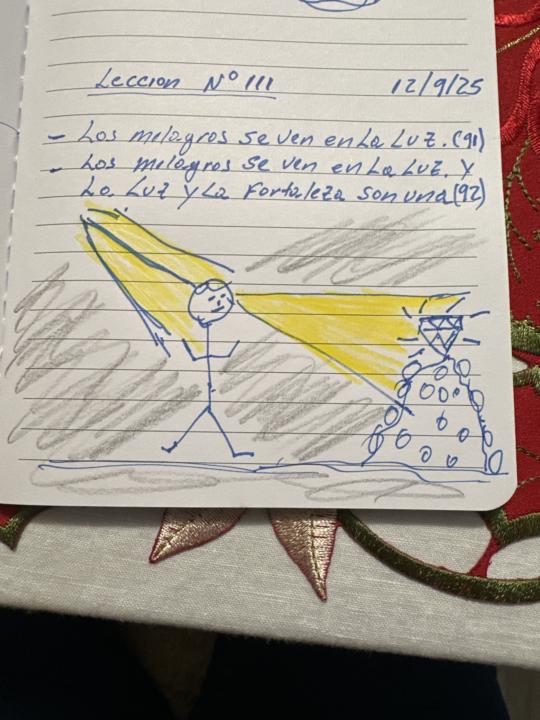 Leccion Nº 111 12/9/25
- Los milagros se ven en La Luz. (91)
- Los milagros se ven en La Luz. y
La Luz y La Fortaleza son una (92)